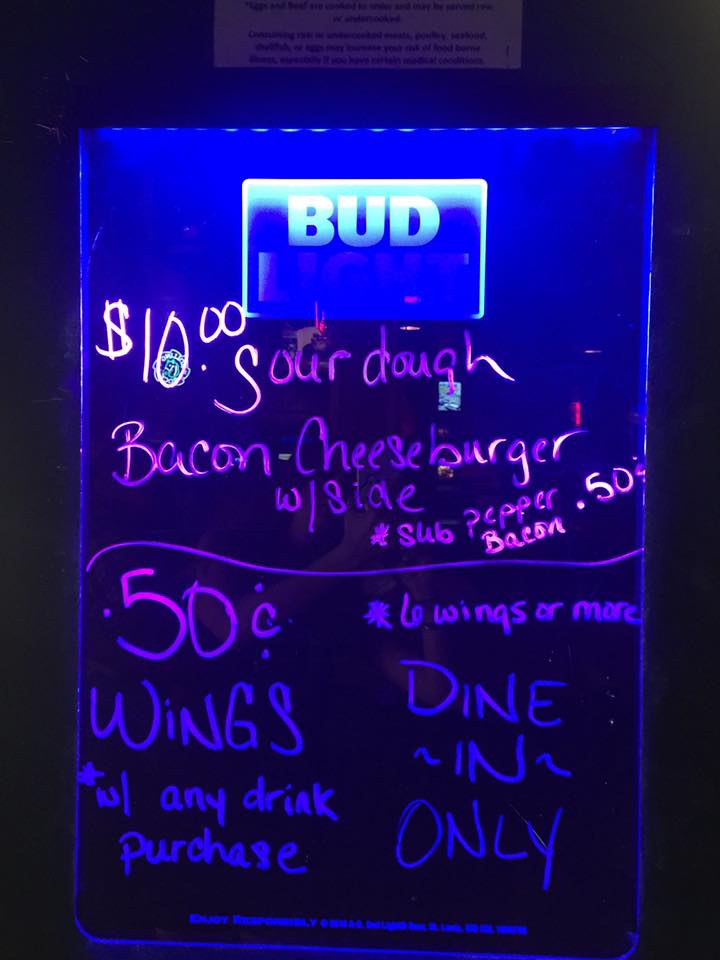 *Eggs and Beef are cooked to order and may be served raw
or undercooked.
Consuming raw or undercooked meats, poultry, seafood,
shellfish, or eggs may increase your risk of food borne
illness, especially if you have certain medical conditions.
BUD
LIGHT
$10.00 Sourdough
Bacon Cheeseburger
w/side
* Sub Pepper Bacon .50¢
.50¢
WINGS
*w/ any drink
purchase
* 6 wings or more
DINE
~IN~
ONLY
ENJOY RESPONSIBLY